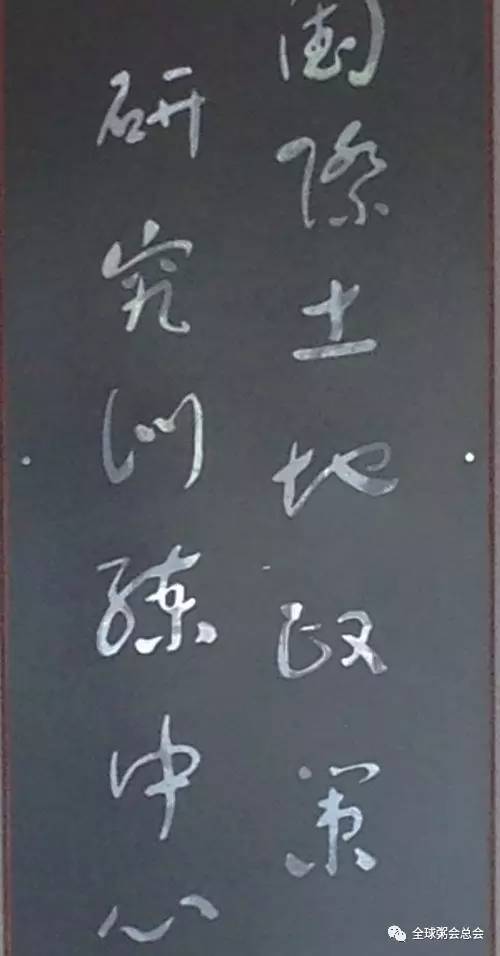 國際土地政策
研究训練中心
全球粥会总会